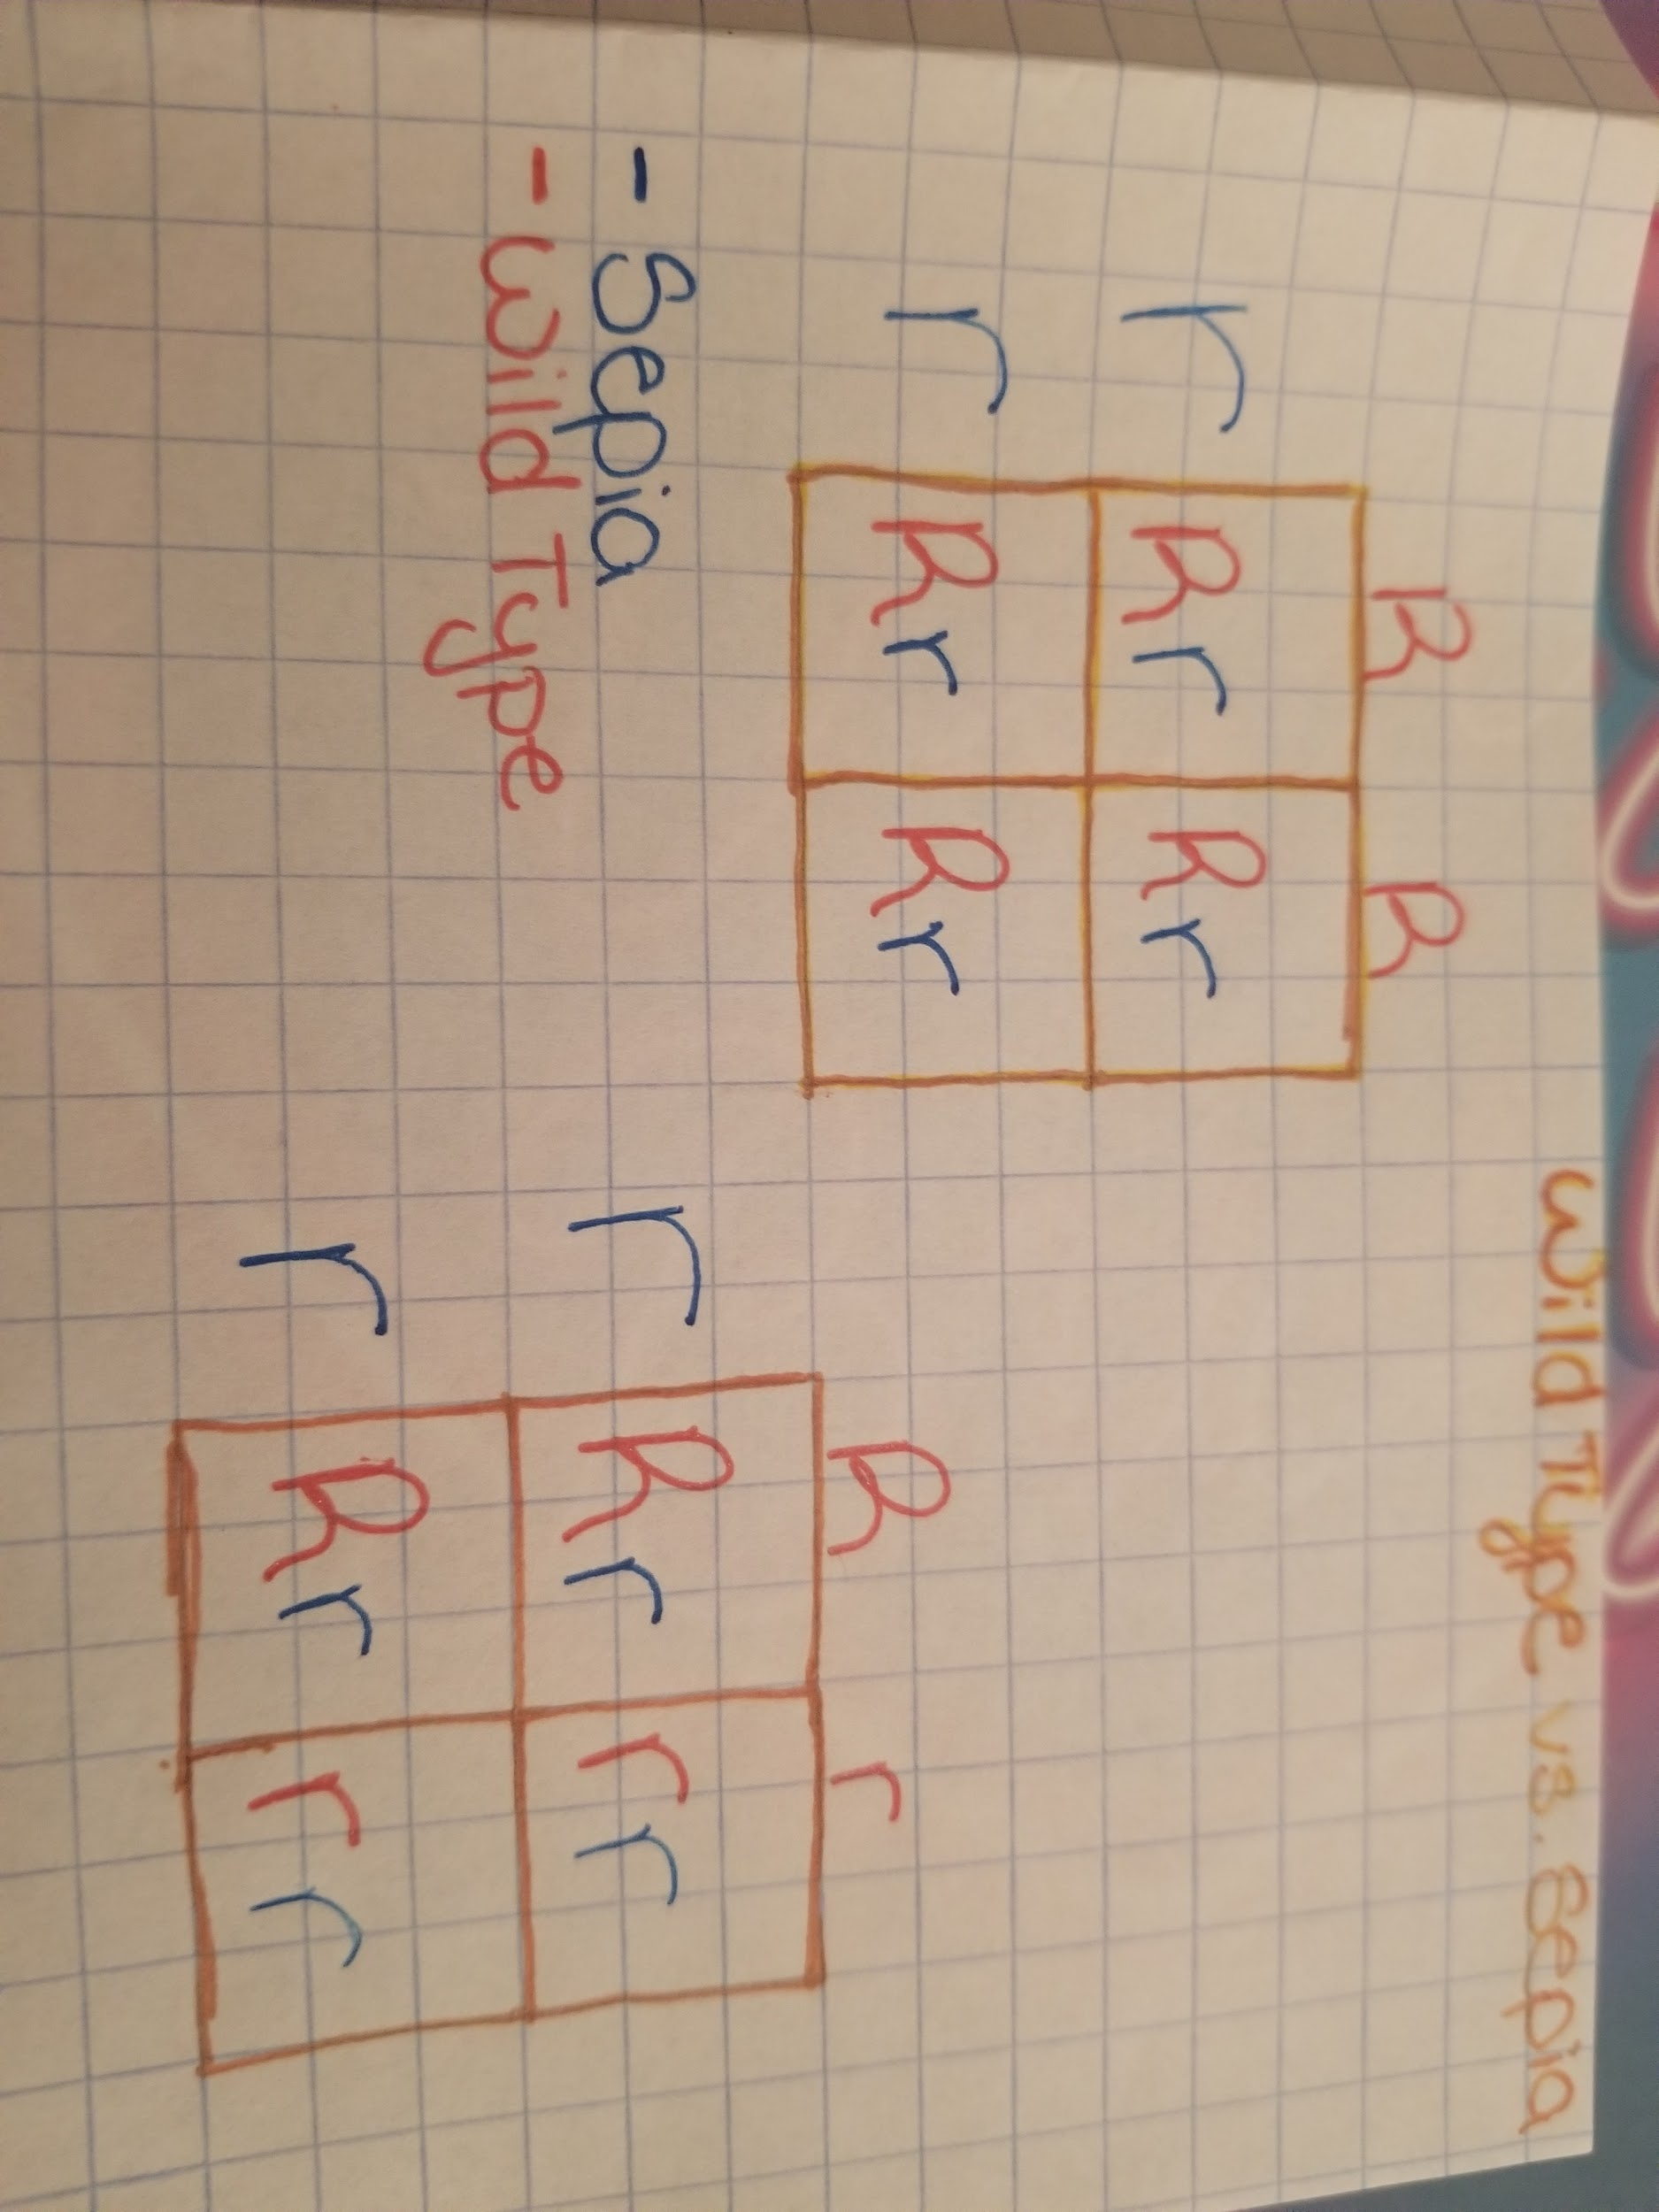 Wild Type vs. Sepia
R R
r Rr Rr
r Rr Rr
- Sepia
- Wild Type
R r
r Rr rr
r Rr rr